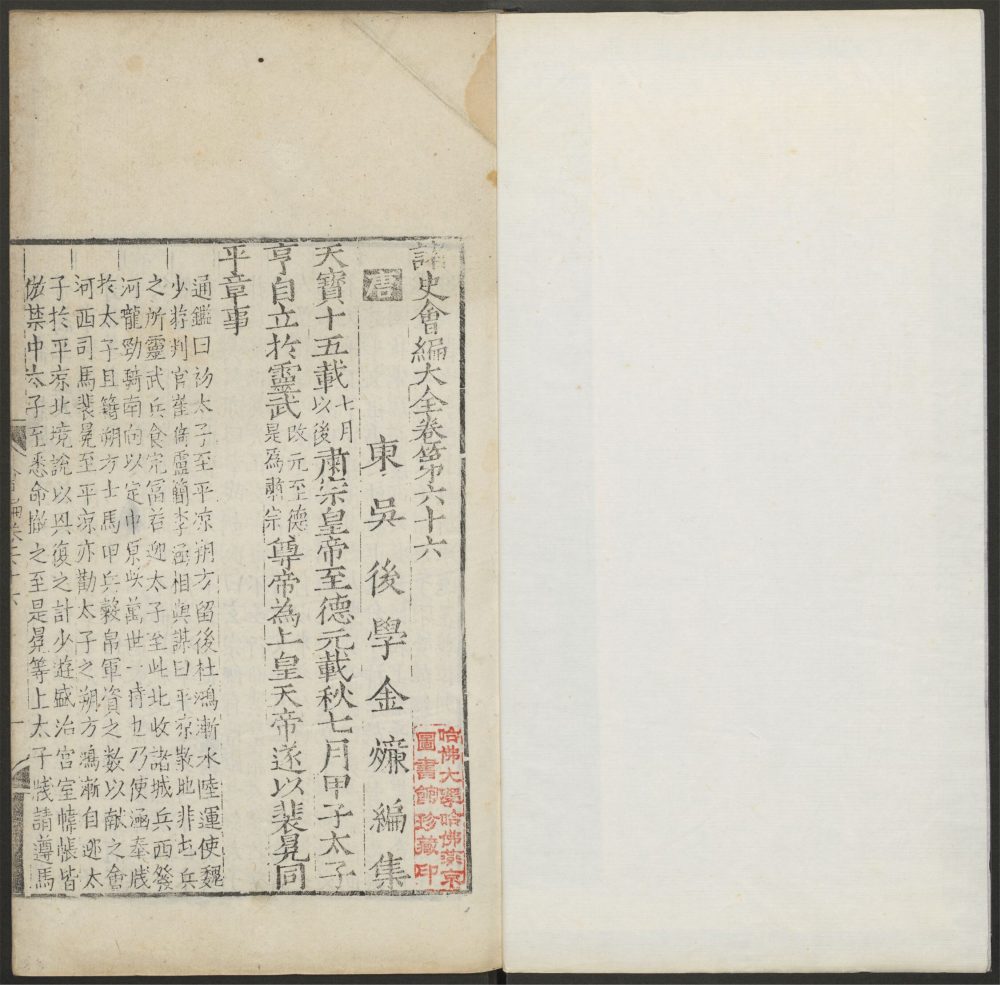 諸史會編大全卷第六十六
哈佛大學哈佛燕京
圖書館珍藏印
東吳後學金燫編集
唐
天寶十五載以後七月肅宗皇帝至德元載秋七月甲子太子
亨自立於靈武改元至德是爲肅宗尊帝為上皇天帝遂以裴冕同
平章事
通鑑曰初太子至平凉朔方留後杜鴻漸水陸運使魏
少遊判官崔漪盧簡李涵相與謀曰平凉散地非屯兵
之所靈武兵食完富若迎太子至此北收諸城兵西發
河隴勁騎南向以定中原此萬世一時也乃使涵奉牋
於太子且籍朔方士馬甲兵穀帛軍資之數以献之會
河西司馬裴冕至平凉亦勸太子之朔方鴻漸自迎太
子於平凉北境說以興復之計少遊盛治宮室幃帳皆
倣禁中太子至悉命撤之至是冕等上太子牋請遵馬